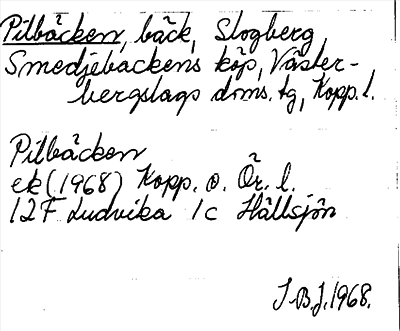 Pilbäcken, bäck, Slogberg,
Smedjebackens köp, Väster-
bergslags doms. tg, Kopp. l.
Pilbäcken
ek (1968) Kopp. o. Ör. l.
12 F Ludvika 1c Hällsjön
J.B.J. 1968.